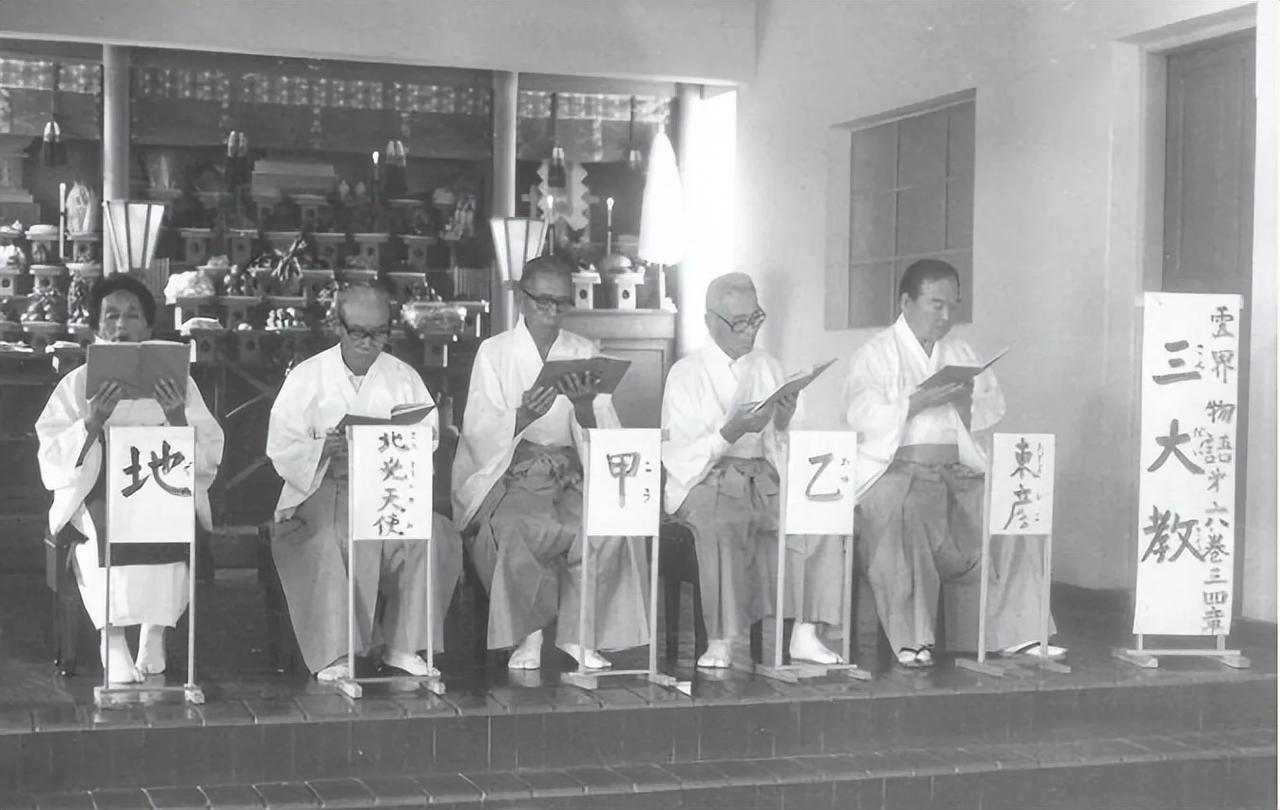 霊界物語㐧六巻三四章
三大教
東彦
乙
おつ
甲
こう
北光天使
地